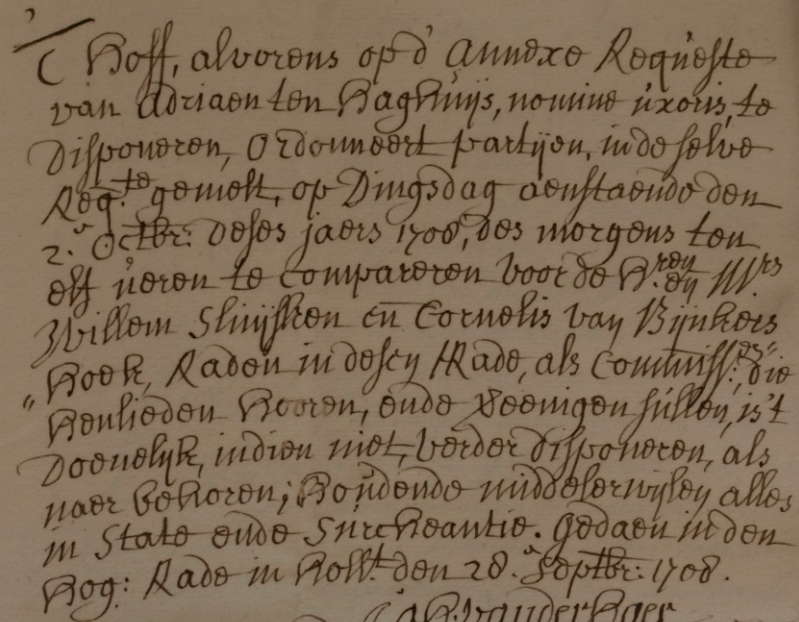 'T Hoff, alvorens op d' annexe Requeste
van Adriaen ten Haghuijs, nomine uxoris, te
Disponeren, Ordonneert partijen, in de selve
Reqte. gemelt, op Dingsdag aenstaende den
2.n Octbr: deses jaers 1708, des morgens ten
elf ueren te compareren voor de H.ren en Mrs
Willem Sluijsken en Cornelis van Bijnkers
"Hoek, Raden in desen Rade, als Commiss.rs, die
"henlieden hooren, ende vereenigen sullen, is't
Doenelijk, indien niet, verder disponeren, als
naer behoren; Houdende middelerwijlen alles
in State ende Surcheantie. Gedaen in den
Hog: Rade in Hollt. den 28.n Septbr: 1708.